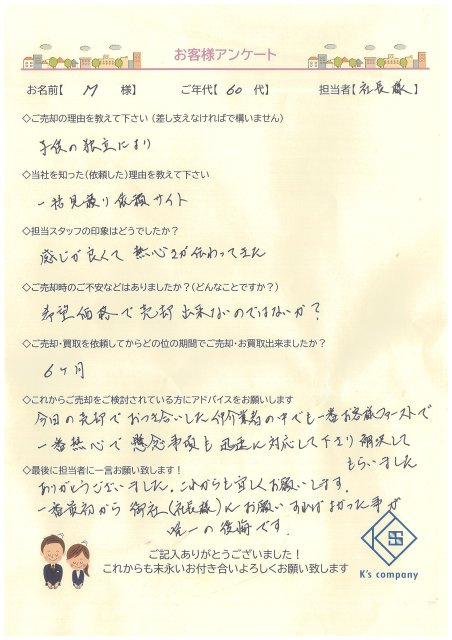 お客様アンケート
お名前【 M 様】 ご年代【 60 代】 担当者【 社長様 】
◇ご売却の理由を教えて下さい(差し支えなければで構いません)
子供の独立により
◇当社を知った(依頼した)理由を教えて下さい
一括見積り依頼サイト
◇担当スタッフの印象はどうでしたか?
感じが良くて熱心さが伝わってきた
◇ご売却時のご不安などはありましたか?(どんなことですか?)
希望価格で売却出来ないのではないか?
◇ご売却・買取を依頼してからどの位の期間でご売却・お買取出来ましたか?
6ヶ月
◇これからご売却をご検討されている方にアドバイスをお願いします
今回の売却でおつき合いした仲介業者の中でも一番お客様ファーストで
一番熱心で懸念事項も迅速に対応して下さり解決して
もらいました
◇最後に担当者に一言お願い致します!
ありがとうございました。これからも宜しくお願いします。
一番最初から御社(社長様)にお願いすればよかった事が
唯一の後悔です。
ご記入ありがとうございました!
これからも末永いお付き合いよろしくお願い致します
K's company